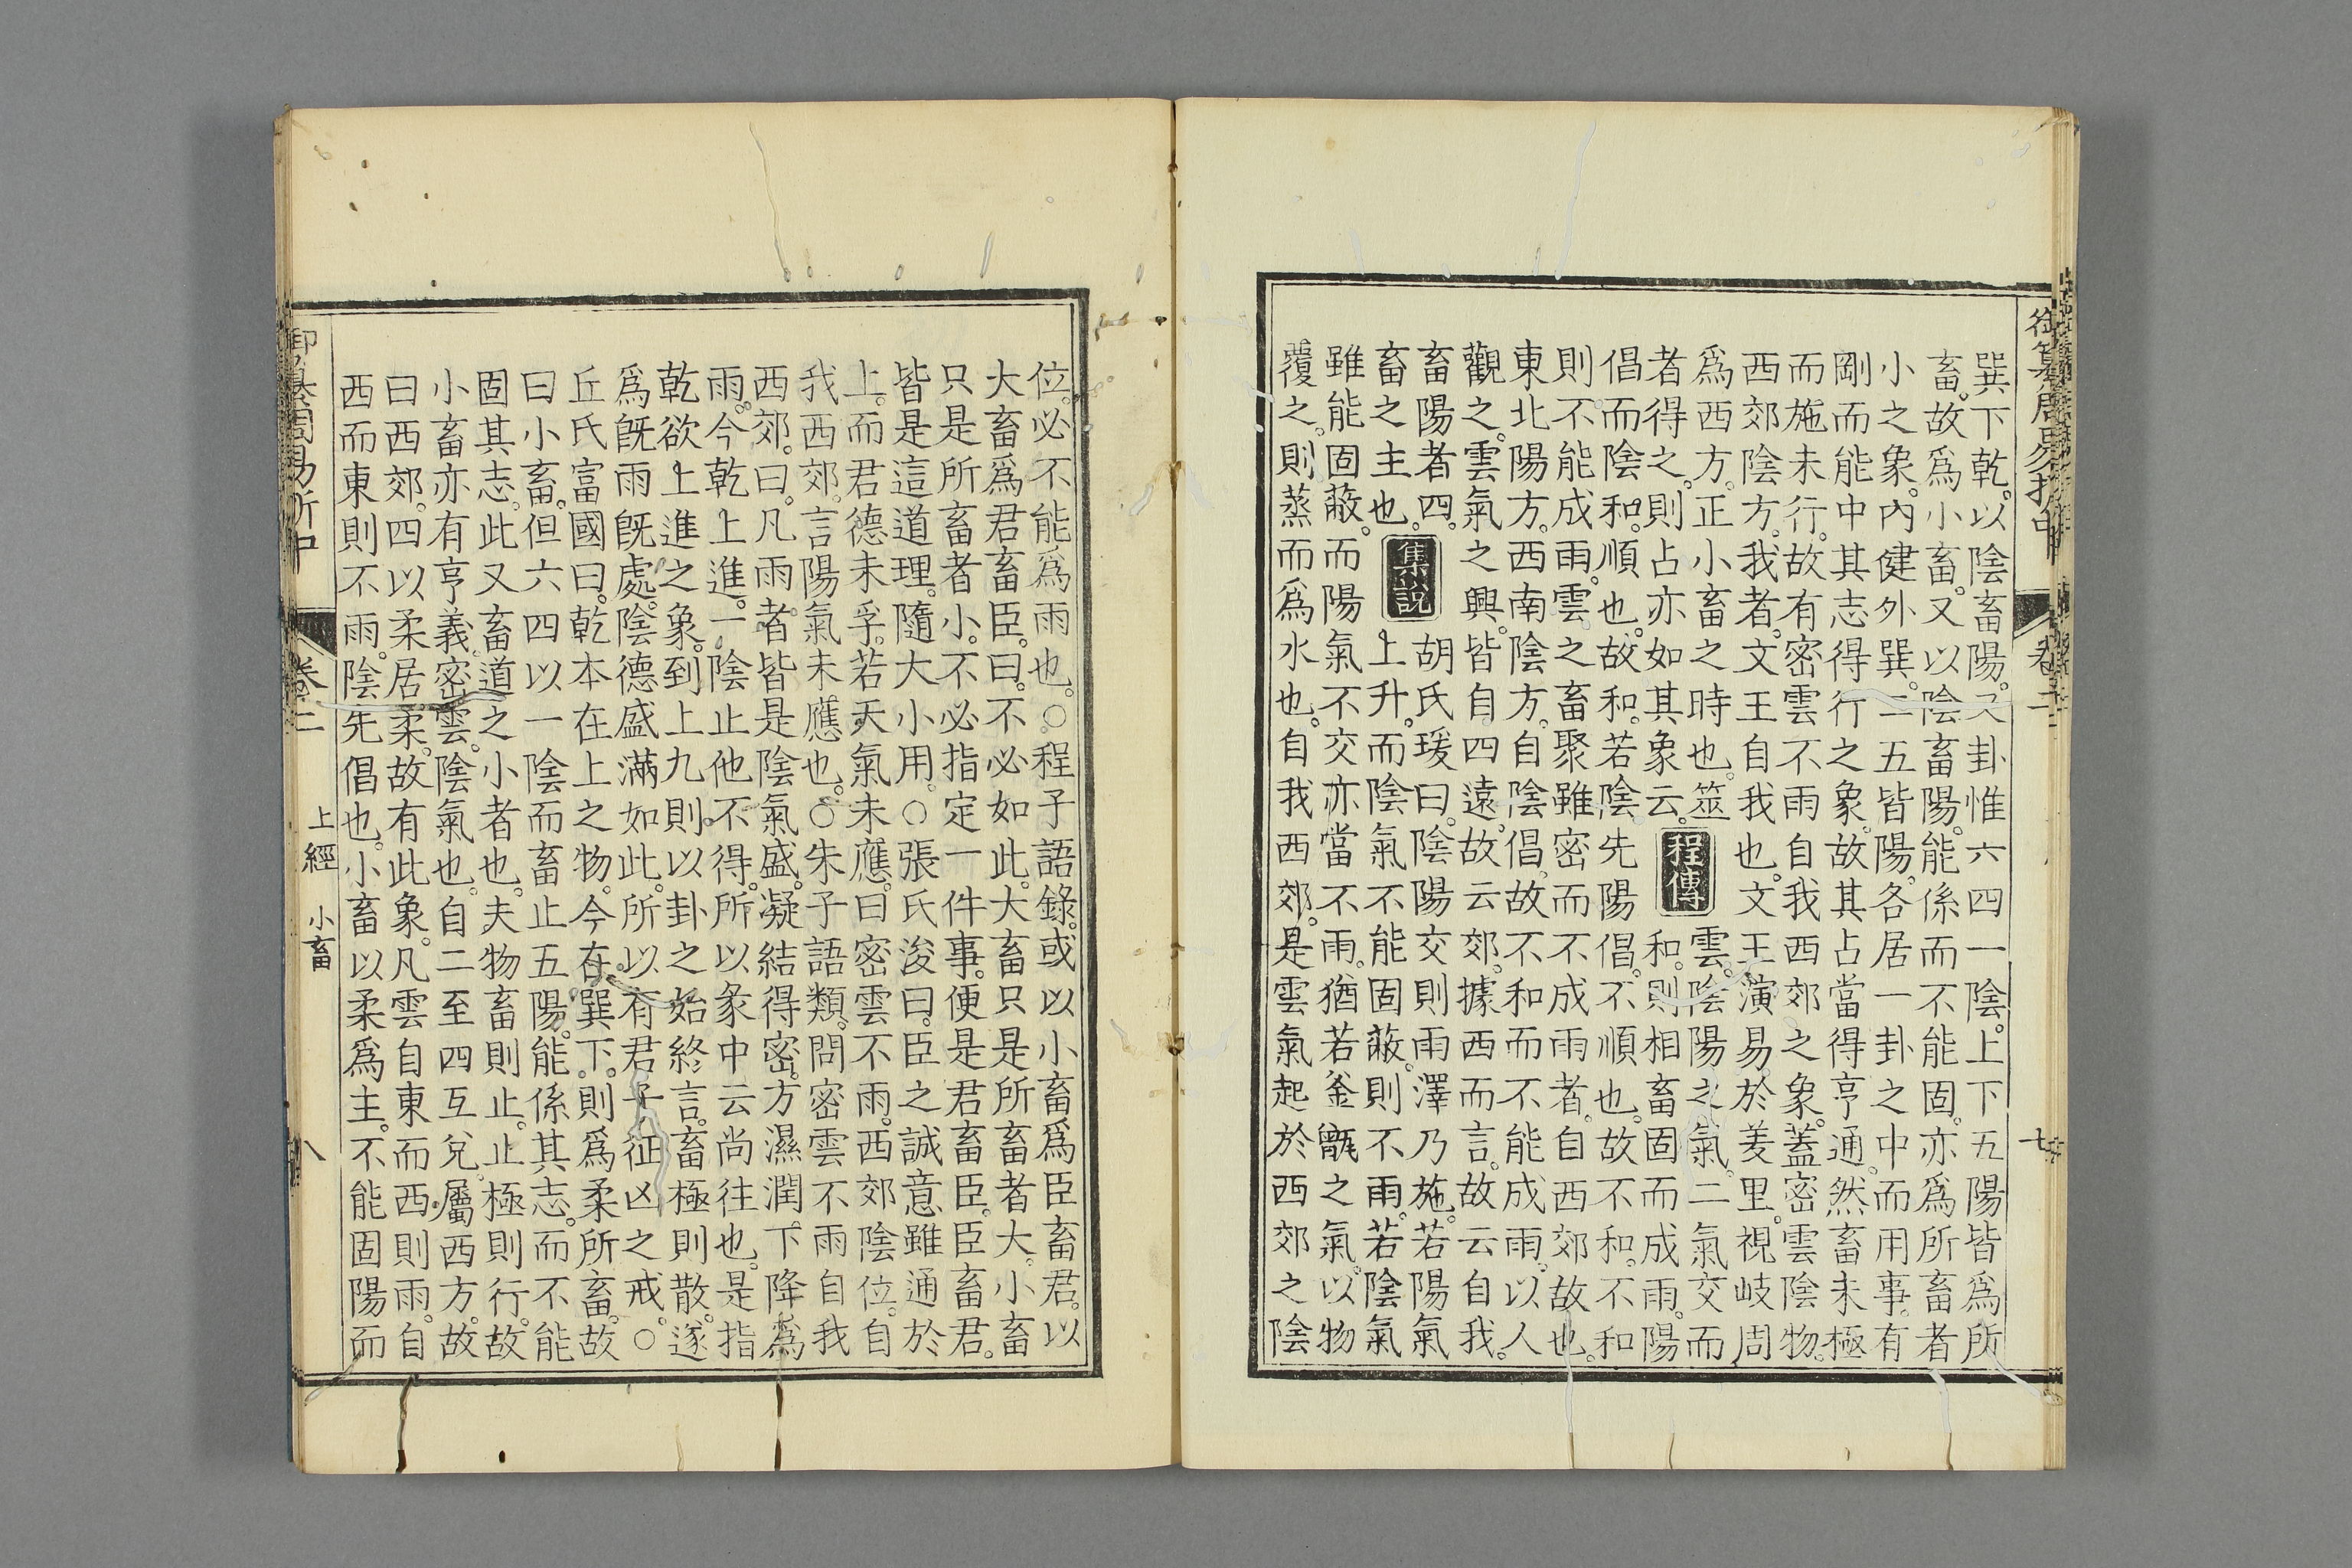 巽下乾。以陰畜陽。又卦惟六四一陰。上下五陽皆爲所
畜。故爲小畜。又以陰畜陽。能係而不能固。亦爲所畜者
小之象。內健外巽。二五皆陽。各居一卦之中而用事。有
剛而能中其志得行之象。故其占當得亨通。然畜未極
而施未行。故有密雲不雨自我西郊之象。蓋密雲陰物。
西郊陰方。我者。文王自我也。文王演易。於羑里。視岐周
爲西方。正小畜之時也。筮
者得之。則占亦如其象云。
程傳
雲。陰陽之氣。二氣交而
和。則相畜固而成雨。陽
倡而陰和。順也。故和。若陰先陽倡。不順也。故不和。不和
則不能成雨。雲之畜聚雖密而不成雨者。自西郊故也。
東北陽方。西南陰方。自陰倡。故不和而不能成雨。以人
觀之。雲氣之興。皆自四遠。故云郊。據西而言。故云自我。
畜陽者四。
畜之主也。
集說
胡氏瑗曰。陰陽交則雨澤乃施。若陽氣
上升。而陰氣不能固蔽。則不雨。若陰氣
雖能固蔽。而陽氣不交。亦當不雨。猶若釜甑之氣。以物
覆之。則蒸而爲水也。自我西郊。是雲氣起於西郊之陰
御纂周易折中 卷二 七
位。必不能爲雨也。○程子語錄。或以小畜爲臣畜君。以
大畜爲君畜臣。曰。不必如此。大畜只是所畜者大。小畜
只是所畜者小。不必指定一件事。便是君畜臣。臣畜君。
皆是這道理。隨大小用。○張氏浚曰。臣之誠意雖通於
上。而君德未孚。若天氣未應。曰密雲不雨。西郊陰位。自
我西郊。言陽氣未應也。○朱子語類。問密雲不雨自我
西郊。曰。凡雨者。皆是陰氣盛。凝結得密。方濕潤。下降爲
雨。今乾上進。一陰止他不得。所以彖中云尚往也。是指
乾欲上進之象。到上九則。以卦之始終言。畜極則散。遂
爲旣雨旣處。陰德盛滿如此。所以有君子征凶之戒。○
丘氏富國曰。乾本在上之物。今在巽下。則爲柔所畜。故
曰小畜。但六四以一陰而畜止五陽。能係其志。而不能
固其志。此又畜道之小者也。夫物畜則止。止極則行。故
小畜亦有亨義。密雲。陰氣也。自二至四互兌。屬西方。故
曰西郊。四以柔居柔。故有此象。凡雲自東而西則雨。自
西而東則不雨。陰先倡也。小畜以柔爲主。不能固陽而
御纂周易折中 卷二 上經 小畜 八